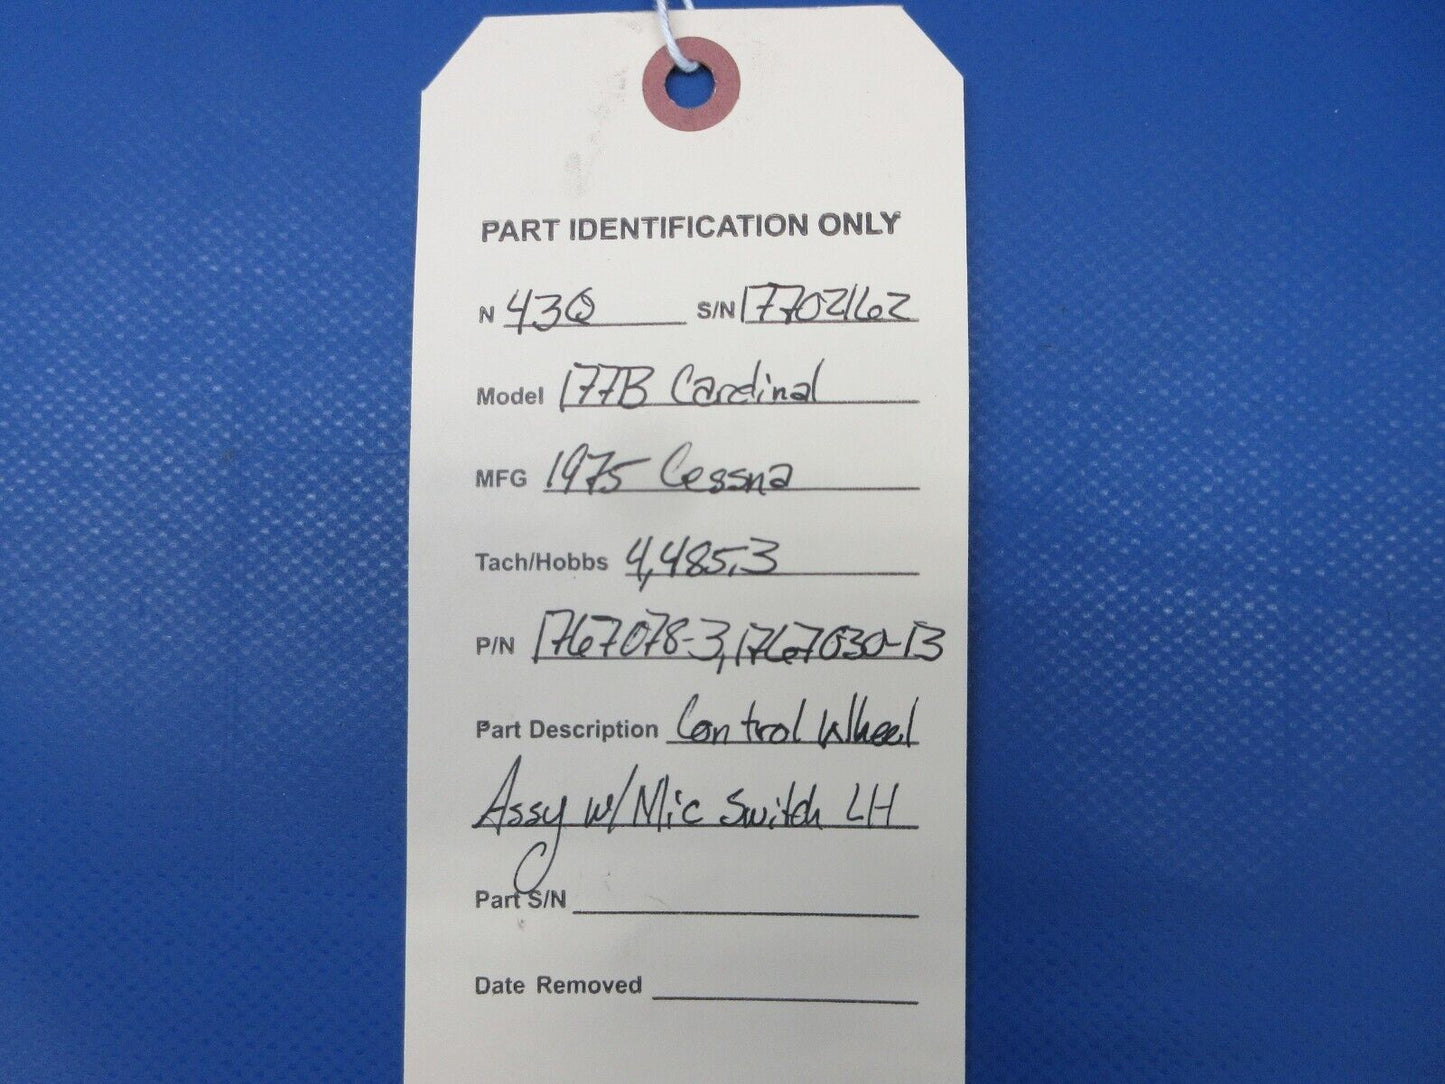 PART IDENTIFICATION ONLY
N 43Q S/N 17702162
Model 177B Cardinal
MFG 1975 Cessna
Tach/Hobbs 4,485.3
P/N 1767078-3, 1767030-13
Part Description Control Wheel
Assy w/ Mic Switch LH
Part S/N
Date Removed